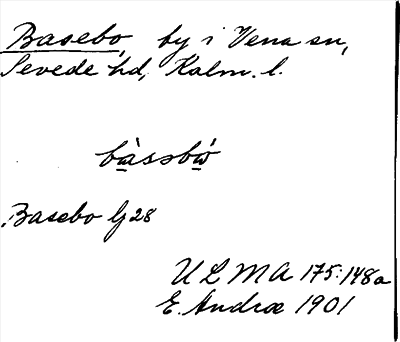 Basebo, by i Vena sn,
Sevede hd, Kalm. l.
bàssbω
Basebo lj 28
ULMA 175:148a
E. Andræ 1901